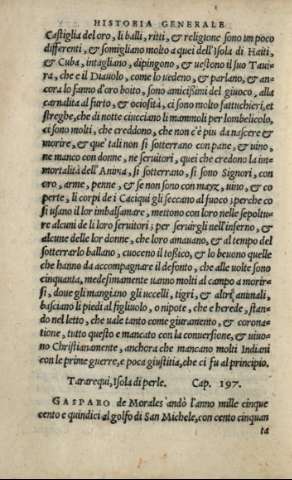 HISTORIA GENERALE
Castiglia del oro, li balli, ritti, & religione sono un poco
differenti, & somigliano molto a quei dell'Isola di Haiti,
& Cuba, intagliano, dipingono, & uestono il suo Taui-
ra, che e il Diauolo, come lo uedeno, & parlano, & an-
cora lo fanno d'oro boito, sono amicißimi del giuoco, alla
carnalita al furto, & ociosità, ci sono molto fattuchieri, et
streghe, che di notte ciucciano li mammoli per lombelicolo,
ci sono molti, che creddono, che non c'è piu da nascere &
morire, & que' tali non si sotterrano con pane, & uino,
ne manco con donne, ne seruitori, quei che credono la im-
mortalità dell'Anima, si sotterrano, si sono Signori, con
oro, arme, penne, & se non sono con mayz, uino, & co
perte, li corpi de i Caciqui gli seccano al fuoco; perche co
si usano il lor imbalsamare, mettono con loro nelle sepoltu-
re alcuni de li loro seruitori; per seruirgli nell'inferno, &
alcune delle lor donne, che loro amauano, & al tempo del
sotterrarlo ballano, cuoceno il toßico, & lo beuono quelle
che hanno da accompagnare il defonto, che alle uolte sono
cinquanta, medesimamente uanno molti al campo a morir-
si, doue gli mangiano gli uccelli, tigri, & altri animali,
basciano li piedi al figliuolo, o nipote, che e herede, stan-
do nel letto, che uale tanto come giuramento, & corona-
tione, tutto questo e mancato con la conuersione, & uiuo-
no Christianamente, anchora che mancano molti Indiani
con le prime guerre, e poca giustitia, che ci fu al principio.
Tararequi, Isola di perle. Cap. 197.
GASPARO de Morales andò l'anno mille cinque
cento e quindici al golfo di San Michele, con cento cinquan
ta